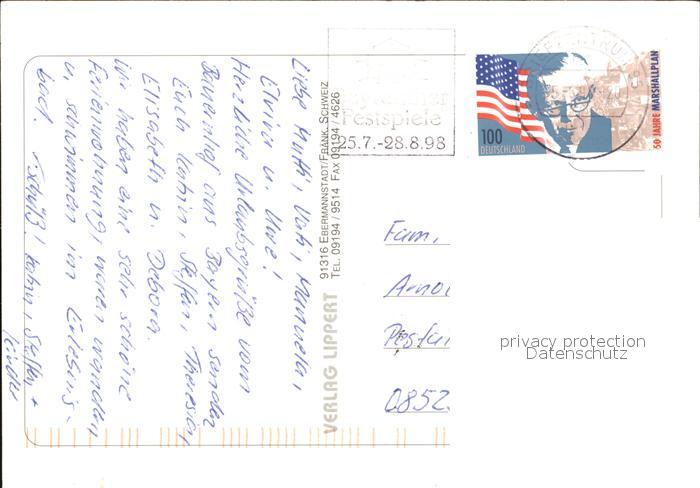 Liebe Mutti, Vati, Manuela,
Elvira u. Uwe!
Herzliche Urlaubsgrüße vom
Bauernhof aus Bayern senden
Euch Katrin, Steffen, Theresia,
Elisabeth u. Debora.
Wir haben eine sehr schöne
Ferienwohnung, waren wandern
u. schwimmen im Erlebnis-
bad. Tschüß! Katrin, Steffen +
Kinder
VERLAG LIPPERT
91316 EBERMANNSTADT/FRÄNK. SCHWEIZ
TEL. 09194 / 9514 FAX 09194 / 4626
Festspiele
25.7.-28.8.98
100
DEUTSCHLAND
50 JAHRE MARSHALLPLAN
Fam.
0852
privacy protection
Datenschutz